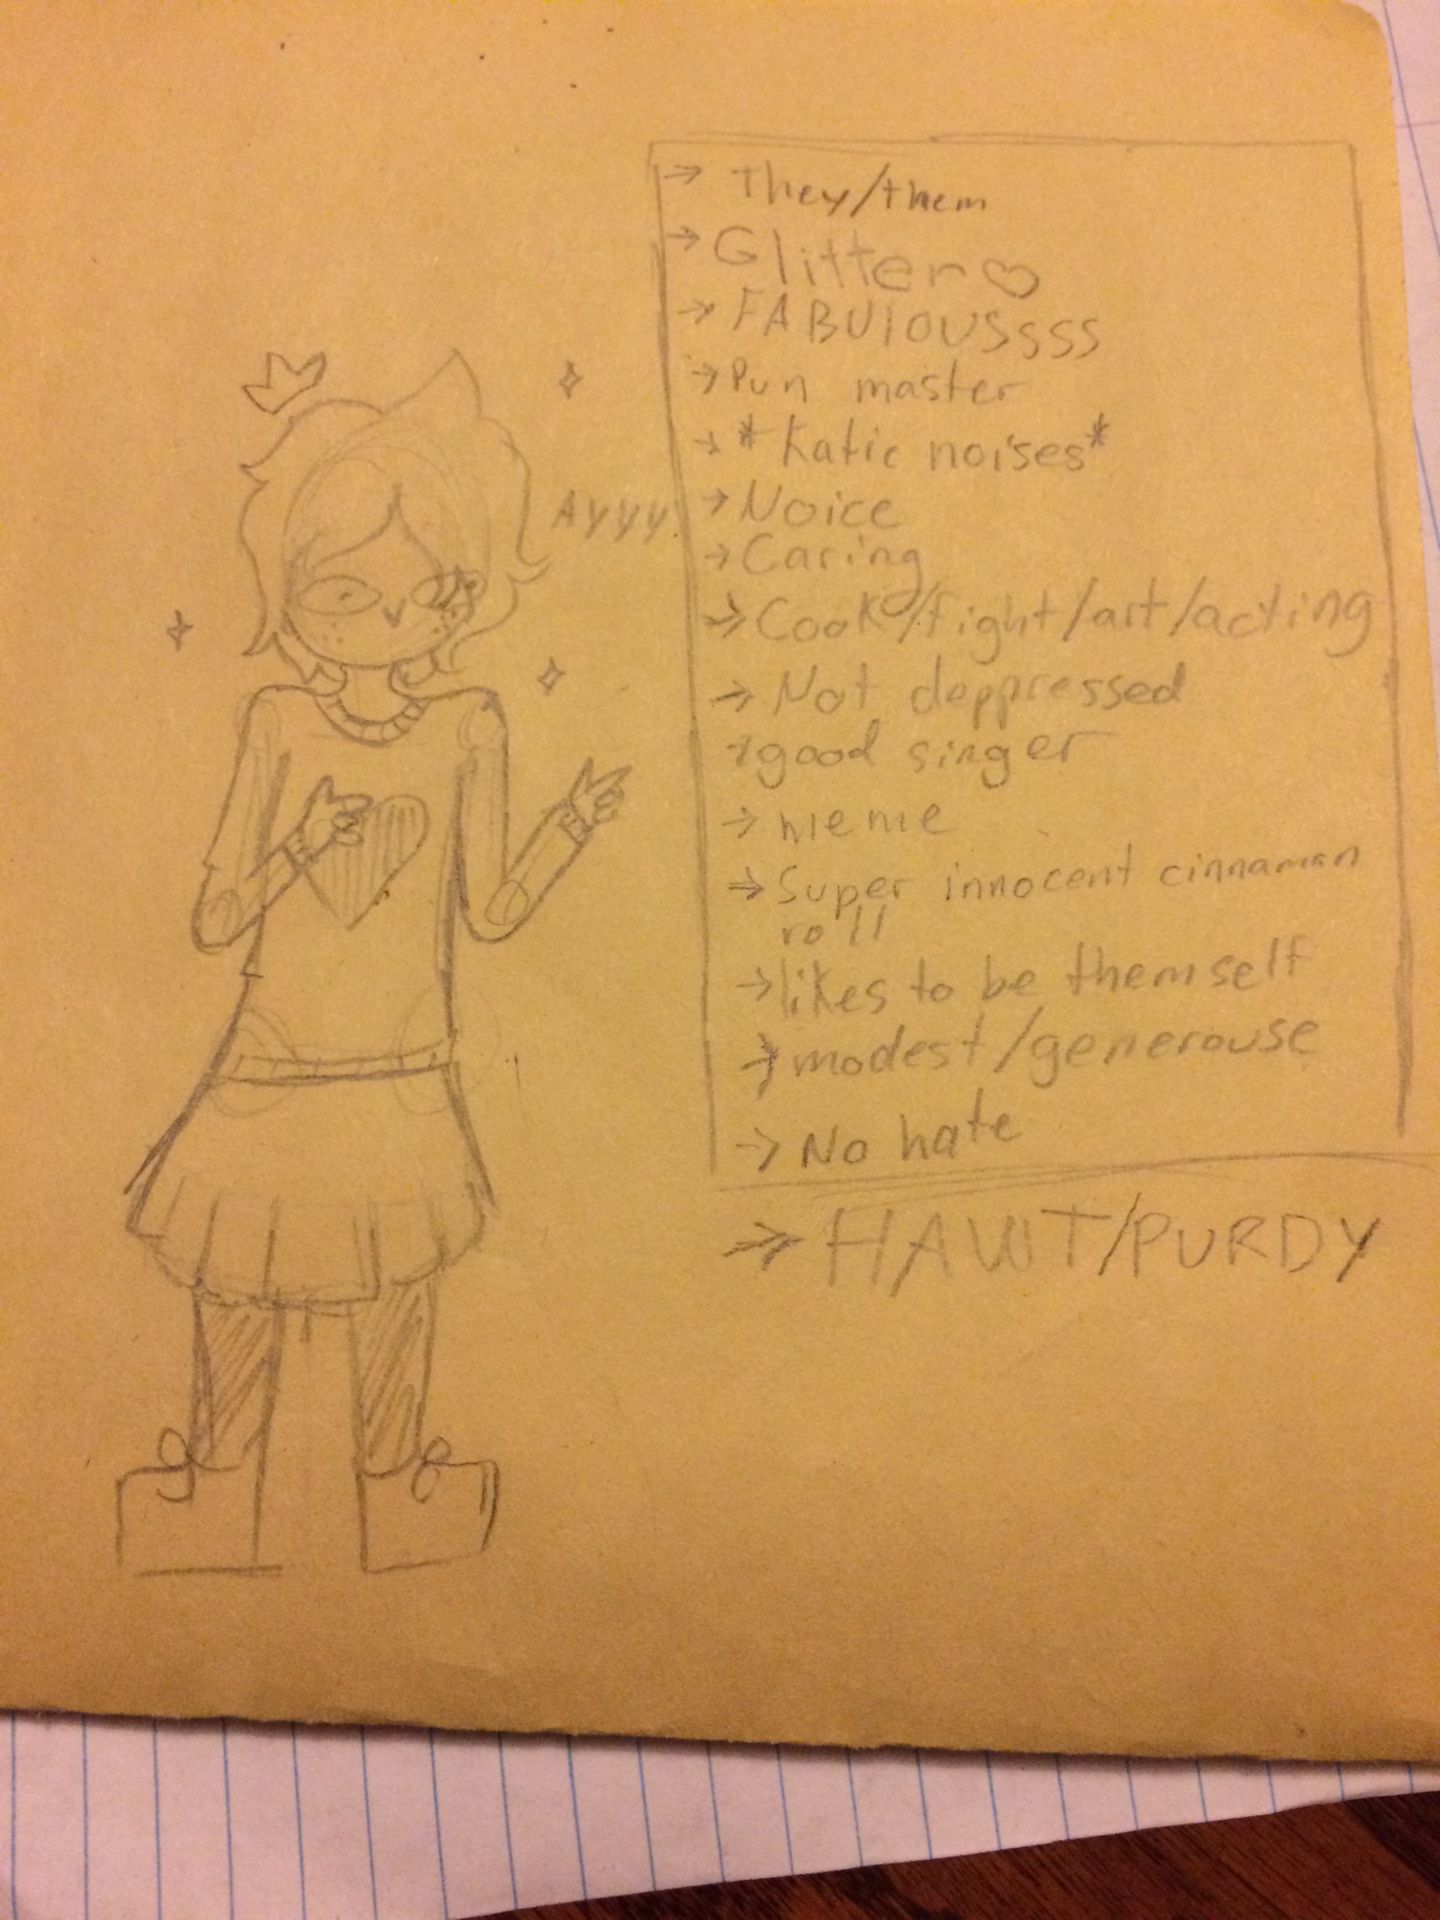 → They/them
→ Glitter ♡
→ FABUlOUSssss
→ Pun master
→ *Katie noises*
Ayyy
→ Noice
→ Caring
→ Cook/fight/art/acting
→ Not deppressed
→ good singer
→ meme
→ Super innocent cinnamon
roll
→ likes to be themself
→ modest/generouse
→ No hate
→ HAWT/PURDY